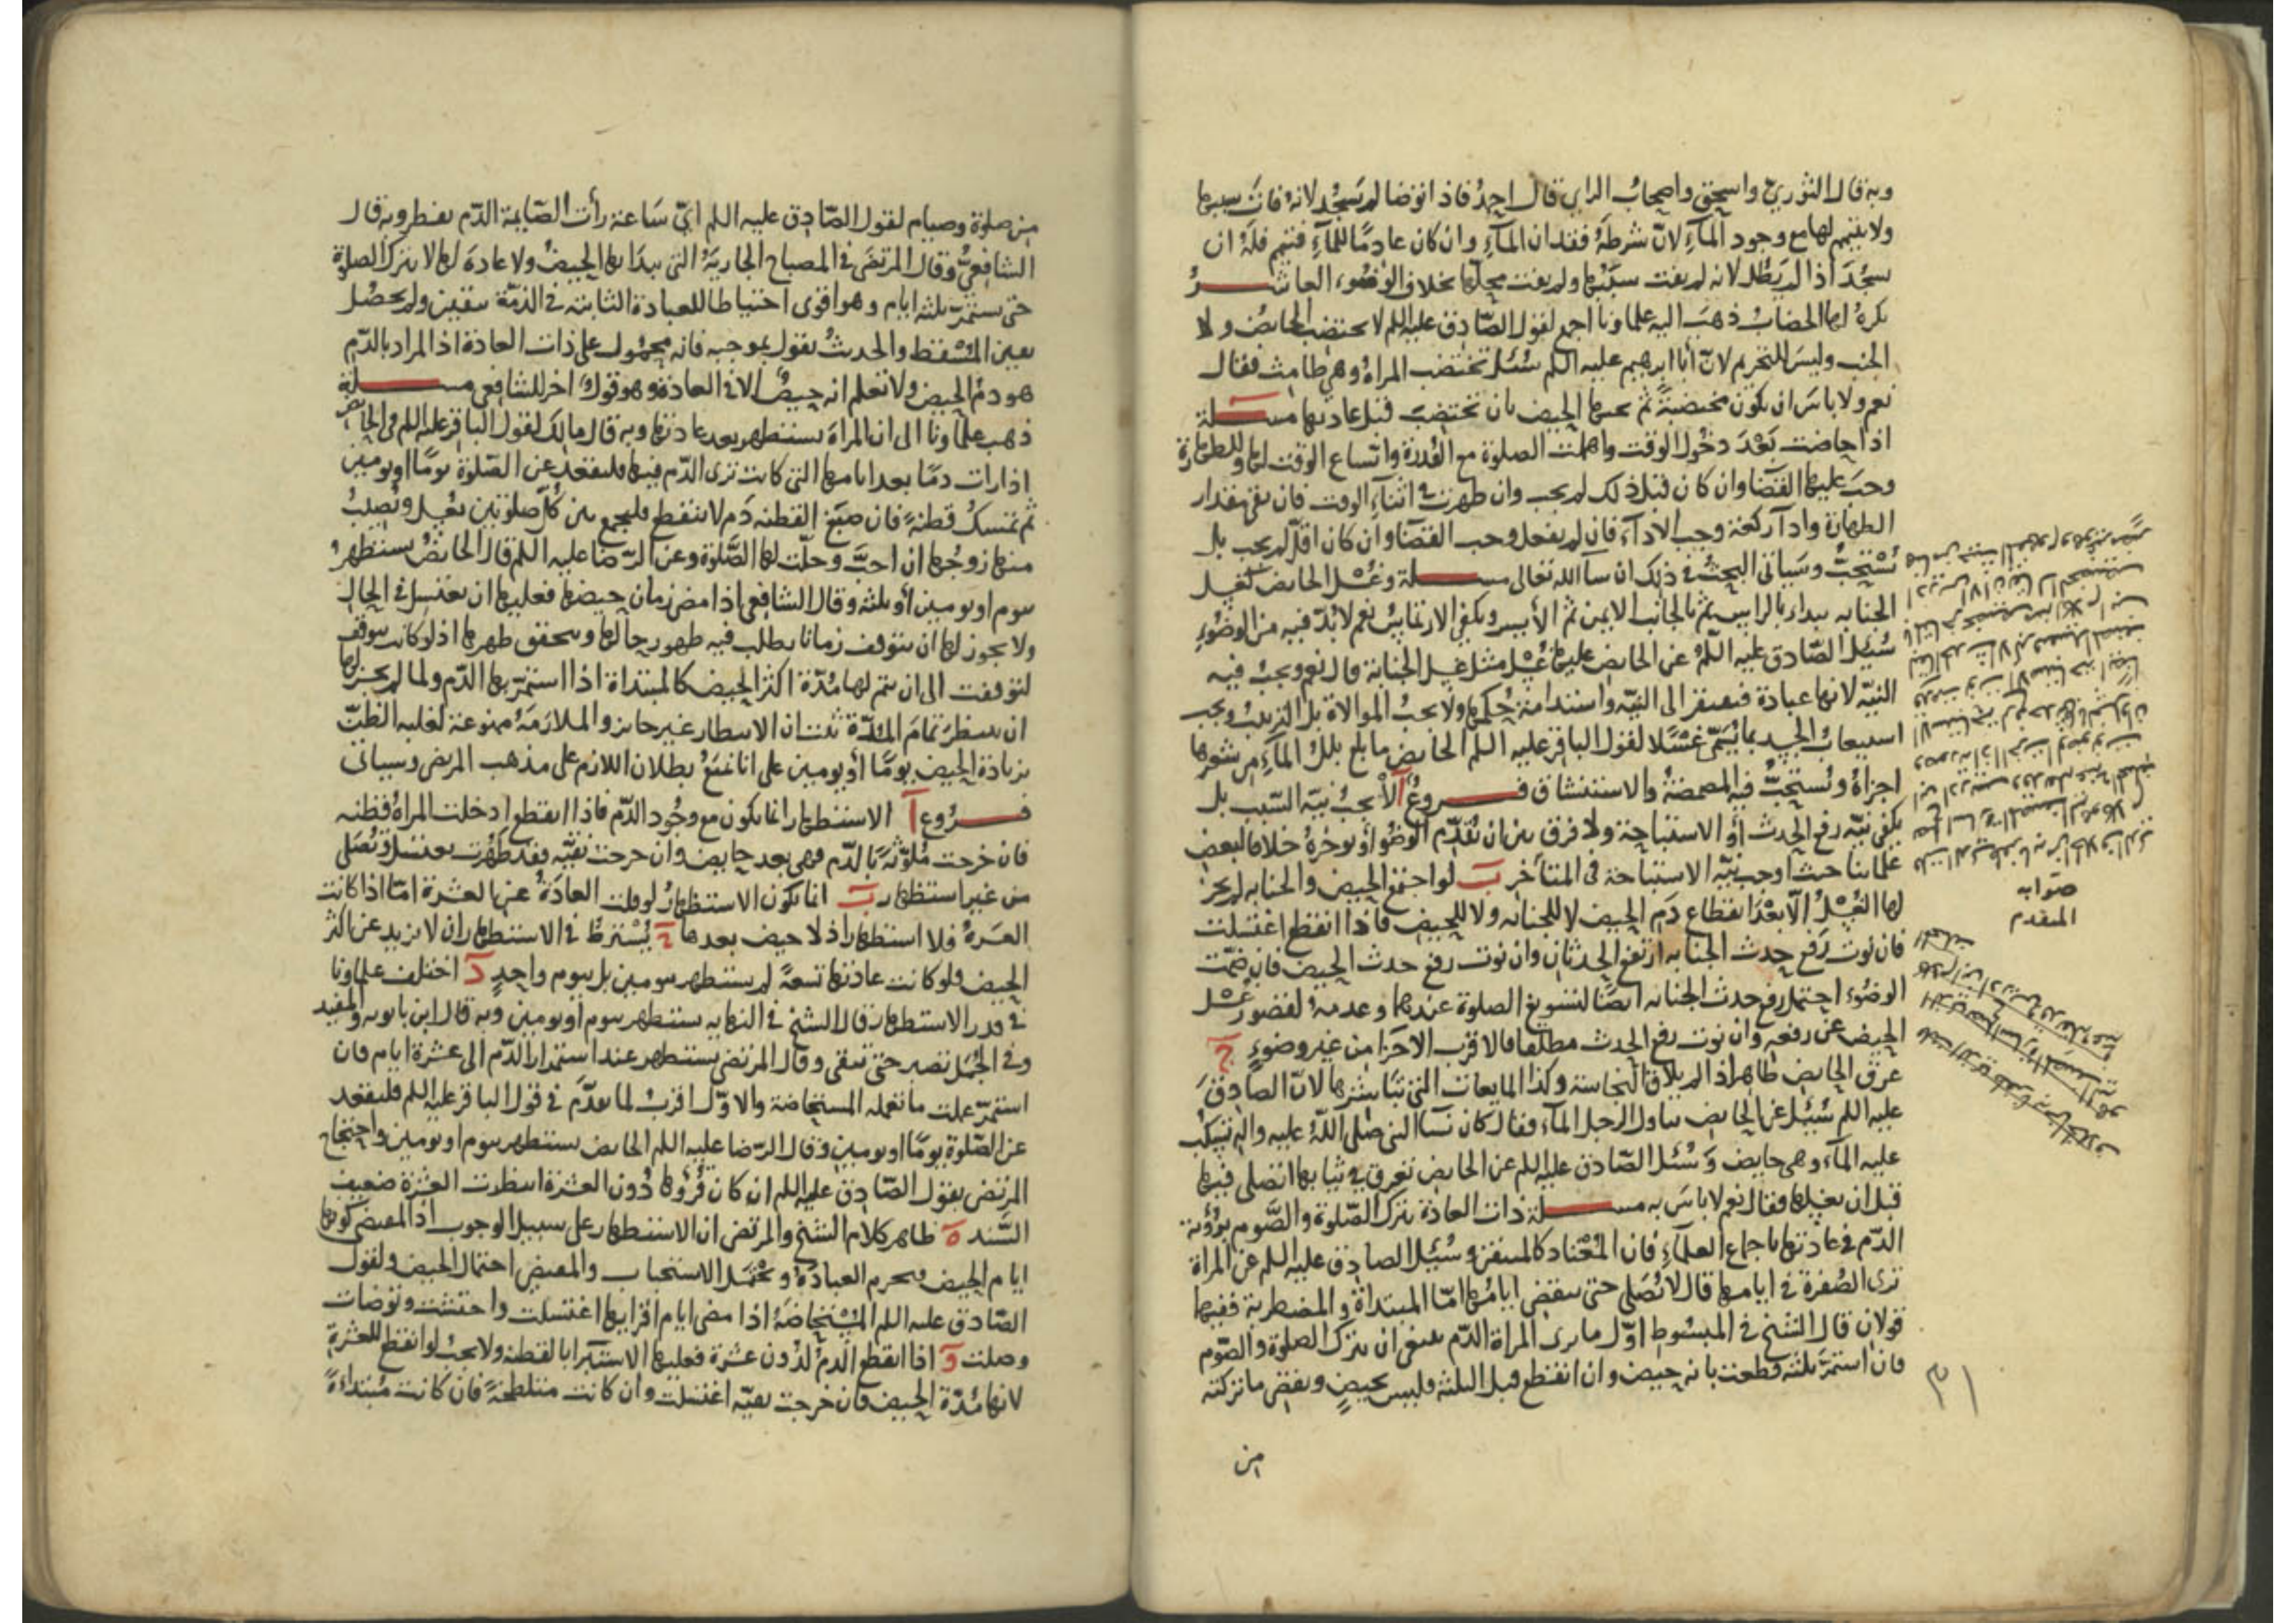 وبه قال الثوري واسحق واصحاب الراي قال احمد فاذا توضا لم يسجد لانه فات سببها
ولا يتيمم لها مع وجود المآء لانّ شرطه فقدان المآء وان كان عادمًا للمآء فتيمم فله ان
يسجد اذا لم يطل لانه لم يفت سببها ولم يفت محلها بخلاف الوضوء، العاشر
يكره لها الخضاب ذهب اليه علماونا اجمع لقول الصّادق عليه اللم لا تختضب الحايض ولا
الجنب وليس للتحريم لانّ أبا ابرهيم عليه اللم سُئل تختضب المراة وهي طامث فقال
نعم ولا باس ان تكون مختضبة ثم يجيها الحيض بان تختضب قبل عادتها مسلة
اذا حاضت بعد دخول الوقت واهملت الصلوة مع القدرة واتساع الوقت لها وللطهارة
وجب عليها القضا وان كان قبل ذلك لم يجب وان طهرت في اثناء الوقت فان بقي مقدار
الطهارة وادآ ركعة وجب الادآء فان لم يفعل وجب القضا وان كان اقل لم يجب بل
يُسْتحبّ وسياتى البحث في ذلك ان سآ الله تعالى مسلة وغسل الحايض كغسل
الجنابه يبداء بالراس ثم بالجانب الايمن ثم الأيسر ويكفى الارتماس نعم لا بدّ فيه من الوضوء
سُئل الصّادق عليه اللم عن الحايض عليها غسل مثل غسل الجنابة قال نعم ويجب فيه
النيّه لانها عبادة فيفتقر الى النيّه واستدامة حكمها ولا يجب الموالاة بل الترتيب ويجب
استيعاب الجسد بما يُسَمّى غسْلًا لقول الباقر عليه اللم الحايض ما بلغ بلل المآء من شعرها
اجزاهُ ويُستحبّ فيه المضمضة والاستنشاق فروع آ لا يجب نيّه السّبب بل
يكفى نيّه رفع الحدث أو الاستباحة ولا فرق بين ان تُقدّم الوضو أو توخره خلافا لبعض
علماينا حيث اوجب نيّه الاستباحة في المتأخر ب لو اجتمع الحيض والجنابه لم يجز
لها الغسل الّا بعد انقطاع دم الحيض لا للجنابه ولا للحيض فاذا انقطع اغتسلت
فان نوت رفع حدث الجنابه ارتفع الحدثان وان نوت رفع حدث الحيض فان ضمّت
الوضوء احتمل رفع حدث الجنابه ايضًا لتسويغ الصلوة عندهما وعدمه لقصور غسل
الحيض عن رفعه وان نوت رفع الحدث مطلقا فالاقرب الاجزا من غير وضوء ج
عرق الحايض طاهر اذا لم يلاق النجاسة وكذا المايعات التي تباشرها لانّ الصادق
عليه اللم سُئل عن الحايض تناول الرجل المآء فقال كان نسآ النبى صلى الله عليه واله تسكب
عليه المآء وهى حايض وسُئل الصّادق عليه اللم عن الحايض تعرق في ثيابها اتصلى فيها
قبل ان تغسلها فقال نعم لا باس به مسلة ذات العادة تترك الصّلوة والصّوم برؤية
الدّم في عادتها باجماع العلمآء فان المعتاد كالمتيقن وسُئل الصادق عليه اللم عن المراة
ترى الصفرة في ايامها قال لا تُصلى حتى تنقضى ايامها امّا المبتداة والمضطربة ففيها
قولان قال الشيخ في المبسوط اوّل ما ترى المراة الدّم ينبغى ان تترك الصلوة والصّوم
فان استمرّ ثلثه قطعت بانه حيض وان انقطع قبل الثلثه فليس بحيضٍ وتقضى ما تركته
من
صوابه
المتقدم
من صلوة وصيام لقول الصّادق عليه اللم اىّ سَاعة رأت الصّايمة الدّم تفطر وبه قال
الشافعىّ وقال المرتضى في المصباح الجاريَة التى يبدا بها الحيض ولا عادة لها لا تترك الصلوة
حتى تستمرّ ثلثه ايام وهو اقوى احتياطا للعبادة الثابته في الذمّة بيقين ولم يحصل
يقين المُسْقط والحديث نقول بموجبه فانه محمول على ذات العادة اذ المراد بالدّم
هو دم الحيض ولا نعلم انه حيض الا في العادة وهو قول اخر للشافعى مسلة
ذهب علماونا الى ان المراة تستظهر بعد عادتها وبه قال مالك لقول الباقر عليه اللم في الحايض
اذا رات دمًا بعد ايامها التى كانت ترى الدّم فيها فلتقعد عن الصّلوة يومًا او يومين
ثم تمسك قطنة فان صبغ القطنه دَم لا ينقطع فلتجمع بين كُلّ صلوتين بغسل ويُصيبُ
منها زوجها ان احبّ وحلّت لها الصّلوة وعن الرّضا عليه اللم قال الحايض تستظهر
بيوم او يومين أو ثلثه وقال الشافعى اذا مضى زمان حيضها فعليها ان تغتسل في الحال
ولا يجوز لها ان تتوقف زمانا يطلب فيه ظهور حالها وتحقق طهرها اذ لو كانت تتوقف
لتوقفت الى ان يتم لها مدّة اكثر الحيض كالمبتداة اذا استمرّ بها الدّم ولما لم يجز لها
ان تنتظر تمام المدّة ثبت ان الانتظار غير جايز والملازمَة ممنوعة لغلبه الظنّ
بزيادة الحيض يومًا أو يومين على انا نمنع بطلان اللازم على مذهب المرتضى وسياتى
فروع آ الاستظهار انما يكون مع وجود الدّم فاذا انقطع ادخلت المراة قطنه
فان خرجت ملوّثة بالدّم فهى بعد حايض وان خرجت نقيّه فقد طهرت تغتسل وتُصلى
من غير استظهار ب انما يكون الاستظهار لو قلت العادة عن العشرة امّا اذا كانت
العشرة فلا استظهار اذ لا حيض بعدها ج يُشترط في الاستظهار ان لا يزيد عن اكثر
الحيض فلو كانت عادتها تسعة لم تستظهر بيومين بل بيوم واحدٍ د اختلف علماونا
في قدر الاستظهار فقال الشيخ في النهايه تستظهر بيوم أو يومين وبه قال ابن بابويه والمفيد
وفى الجُمل تصبر حتى تنقى وقال المرتضى تستظهر عند استمرار الدّم الى عشرة ايام فان
استمرّ عملت ما تعمله المستحاضة والاوّل اقرب لما تقدّم في قول الباقر عليه اللم فلتقعد
عن الصّلوة يومًا او يومين وقال الرّضا عليه اللم الحايض تستظهر بيوم او يومين واحتجاج
المرتضى بقول الصّادق عليه اللم ان كان قُروُها دُون العشرة انتظرت العشرة ضعيف
السَّند ه ظاهر كلام الشيخ والمرتضى ان الاستظهار على سبيل الوجوب اذ المقتضى كونها
ايام الحيض فيحرم العبادة ويحتمل الاستحباب والمقتضى احتمال الحيض ولقول
الصّادق عليه اللم المُسْتحاضة اذا مضى ايام اقرايها اغتسلت واحتشت وتوضات
وصلت و اذا انقطع الدم لدُون عشرة فعليها الاستبرا بالقطنه ولا يجب لو انقطع للعشرة
لانها مُدّة الحيض فان خرجت نقيّه اغتسلت وان كانت متلطخةً فان كانت مُبتداءةً